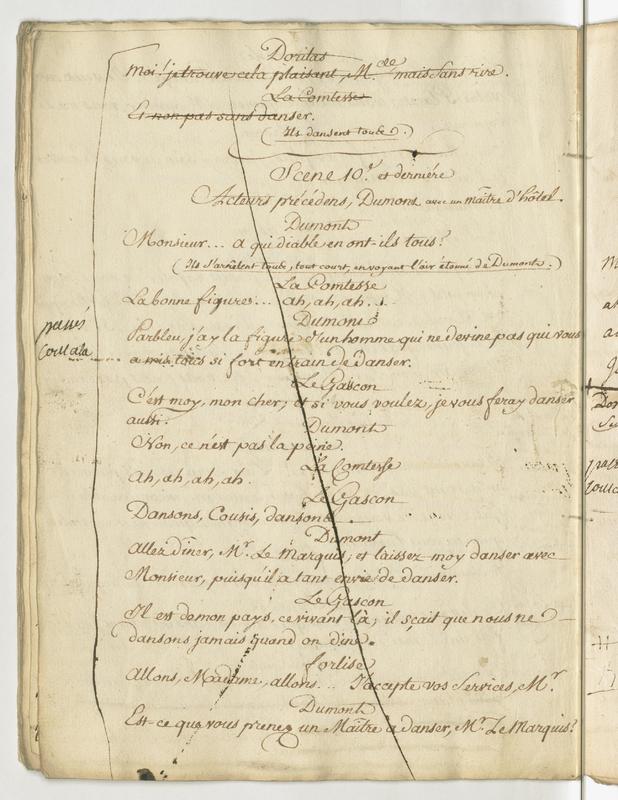 Doritas
Moi! je trouve cela plaisant, M.de mais sans rire.
La Comtesse
Et non pas sans danser.
(Ils dansent touts.)
Scene 10.e et derniére
Acteurs précédens, Dumont avec un maître d'hôtel.
Dumont
Monsieur... a qui diable en ont-ils tous?
(Ils s'arrêtent touts, tout court, en voyant l'air étonné de Dumont.)
La Comtesse
La bonne figure... ah, ah, ah...
Dumont
Parbleu, j'ay la figure d'un homme qui ne devine pas qui vous
a mis touts si fort en train de danser.
Le Gascon
C'est moy, mon cher; et si vous voulez, je vous feray danser
aussi.
Dumont
Non, ce n'est pas la peine.
La Comtesse
Ah, ah, ah, ah.
Le Gascon
Dansons, Cousis, dansons
Dumont
Allez dîner, Mr. Le Marquis; et laissez-moy danser avec
Monsieur, puisqu'il a tant envie de danser.
Le Gascon
Il est de mon pays, ce vivant là; il sçait que nous ne
dansons jamais quand on dine.
forlise
Allons, Madame, allons... J'accepte vos Services, Mr.
Dumont
Est-ce que vous prenez un Maître à danser, Mr. Le Marquis?
passés
tout cela